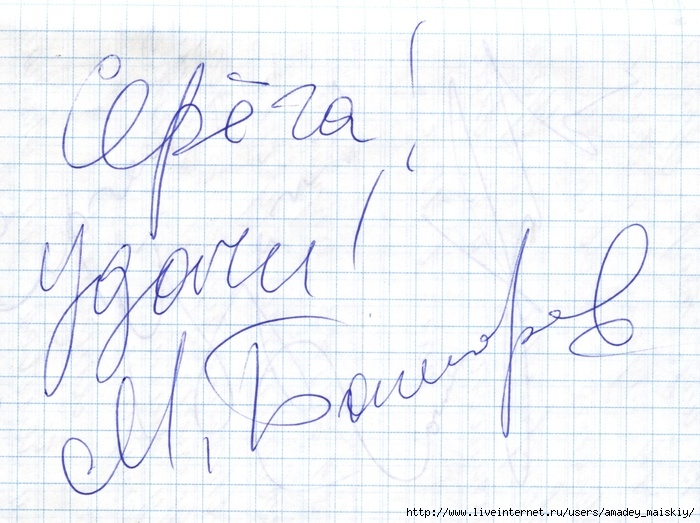 Серёга!
удачи!
М, Башаров
http://www.liveinternet.ru/users/amadey_maiskiy/